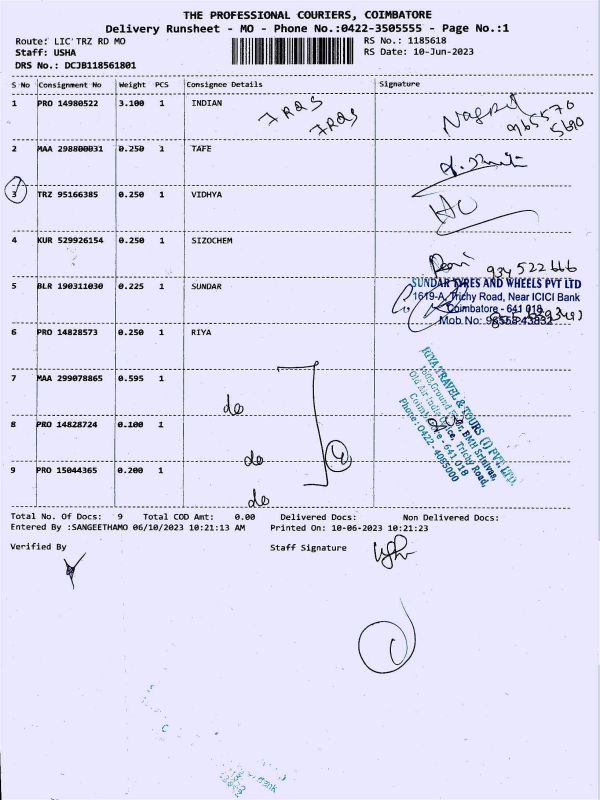 THE PROFESSIONAL COURIERS, COIMBATORE
Delivery Runsheet - MO - Phone No.:0422-3505555 - Page No.:1
Route: LIC TRZ RD MO
RS No.: 1185618
Staff: USHA
RS Date: 10-Jun-2023
DRS No.: DCJB118561801
S No Consignment No Weight PCS Consignee Details Signature
1 PRO 14980522 3.100 1 INDIAN
2 MAA 298800031 0.250 1 TAFE
3 TRZ 95166385 0.250 1 VIDHYA
4 KUR 529926154 0.250 1 SIZOCHEM
934 522 666
5 BLR 190311030 0.225 1 SUNDAR
SUNDAR TYRES AND WHEELS PVT LTD
1619-A, Trichy Road, Near ICICI Bank
Coimbatore - 641 018
Mob No:
6 PRO 14828573 0.250 1 RIYA
7 MAA 299078865 0.595 1
do
8 PRO 14828724 0.100 1
do
9 PRO 15044365 0.200 1
do
RIYA TRAVEL & TOURS (I) PVT. LTD.
1602, Ground BMH Srinivas,
Old Air India Office, Trichy Road,
Coimbatore - 641 018
Phone : 0422 - 4065000
Total No. Of Docs: 9 Total COD Amt: 0.00 Delivered Docs: Non Delivered Docs:
Entered By :SANGEETHAMO 06/10/2023 10:21:13 AM Printed On: 10-06-2023 10:21:23
Verified By Staff Signature